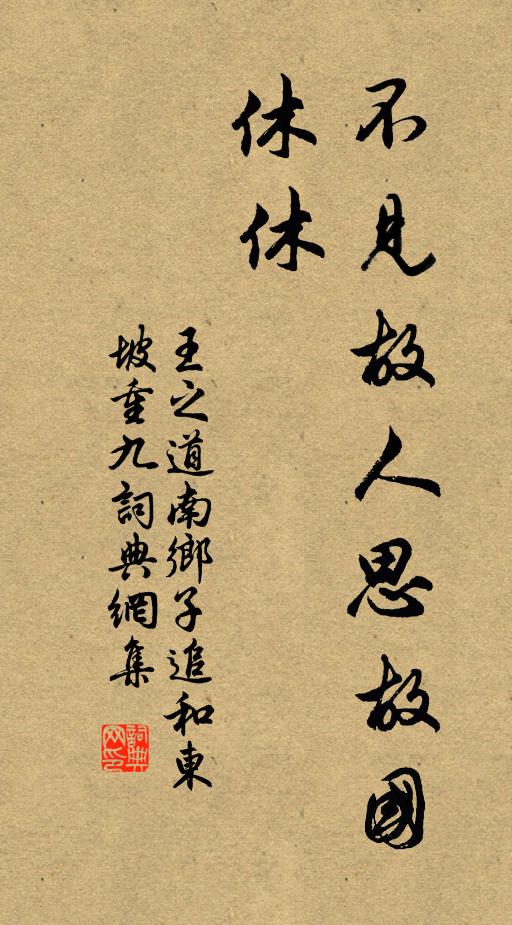 不見故人思故國
休休
王之道南鄉子追和東
坡重九詞典網集
詞典
网印